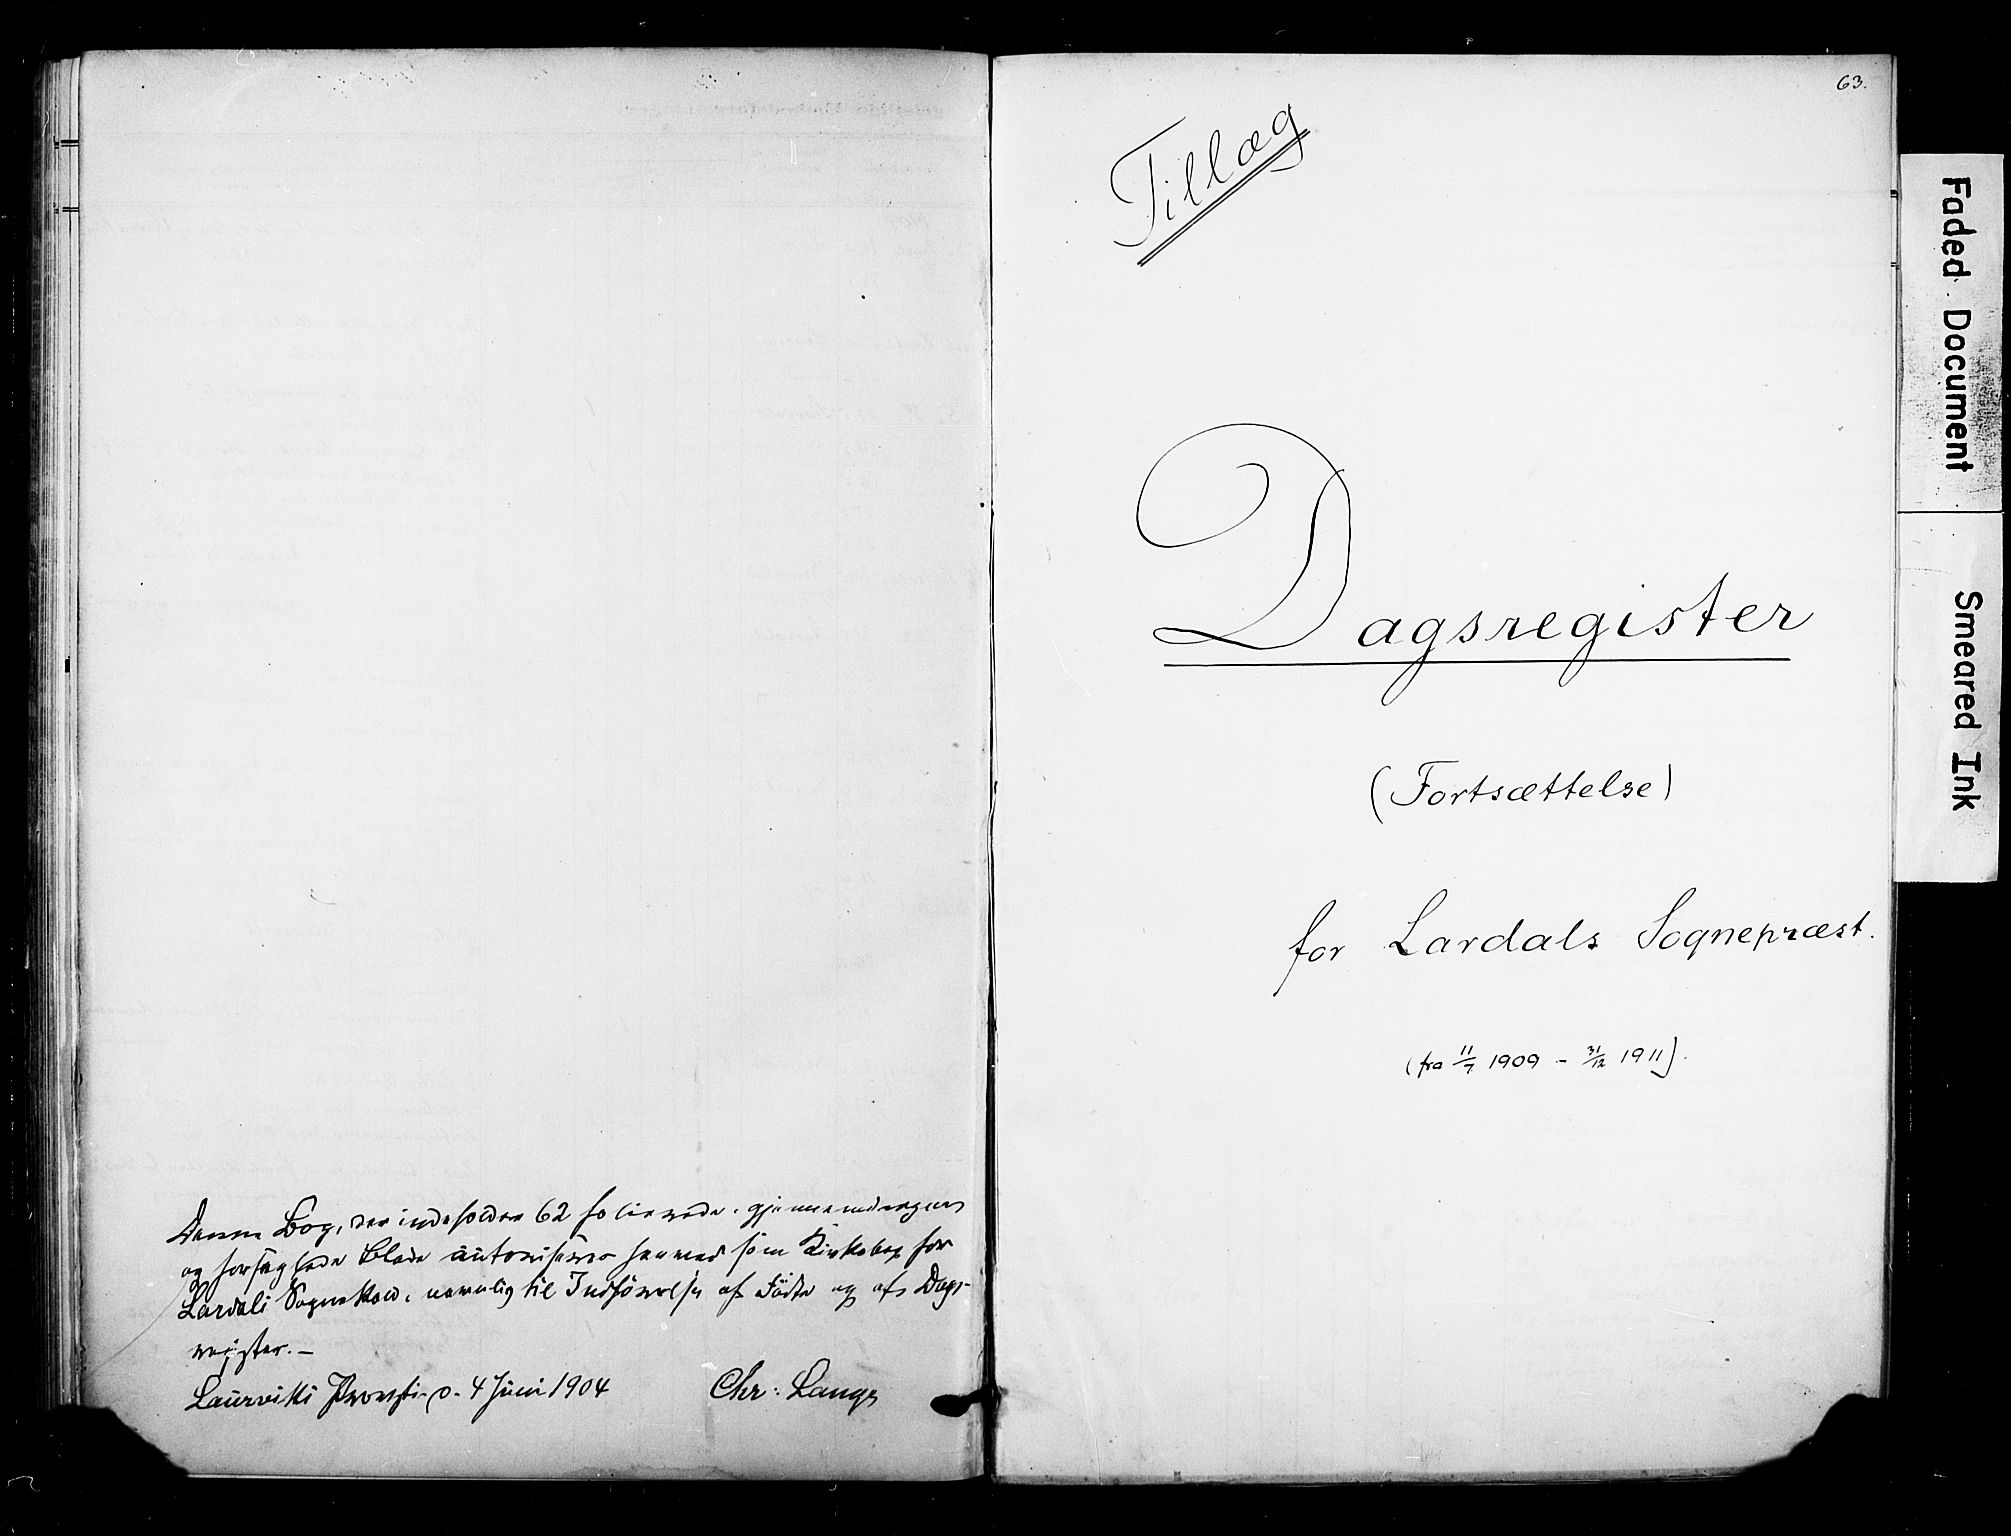 Denne Bog, der indeholder 62 folierede, gjennemdragne
og forseglede Blade autoriseres hermed som Kirkebog for
Lardals Sognekald, nemlig til Indførelse af Fødte og af Dags-
register. –
Laurviks Provsti d. 4 Juni 1904 Chr: Lange
63.
Tillæg
Dagsregister
(Fortsættelse)
for Lardals Sognepræst.
(fra 11/7 1909 - 31/12 1911).
Faded Document
Smeared Ink